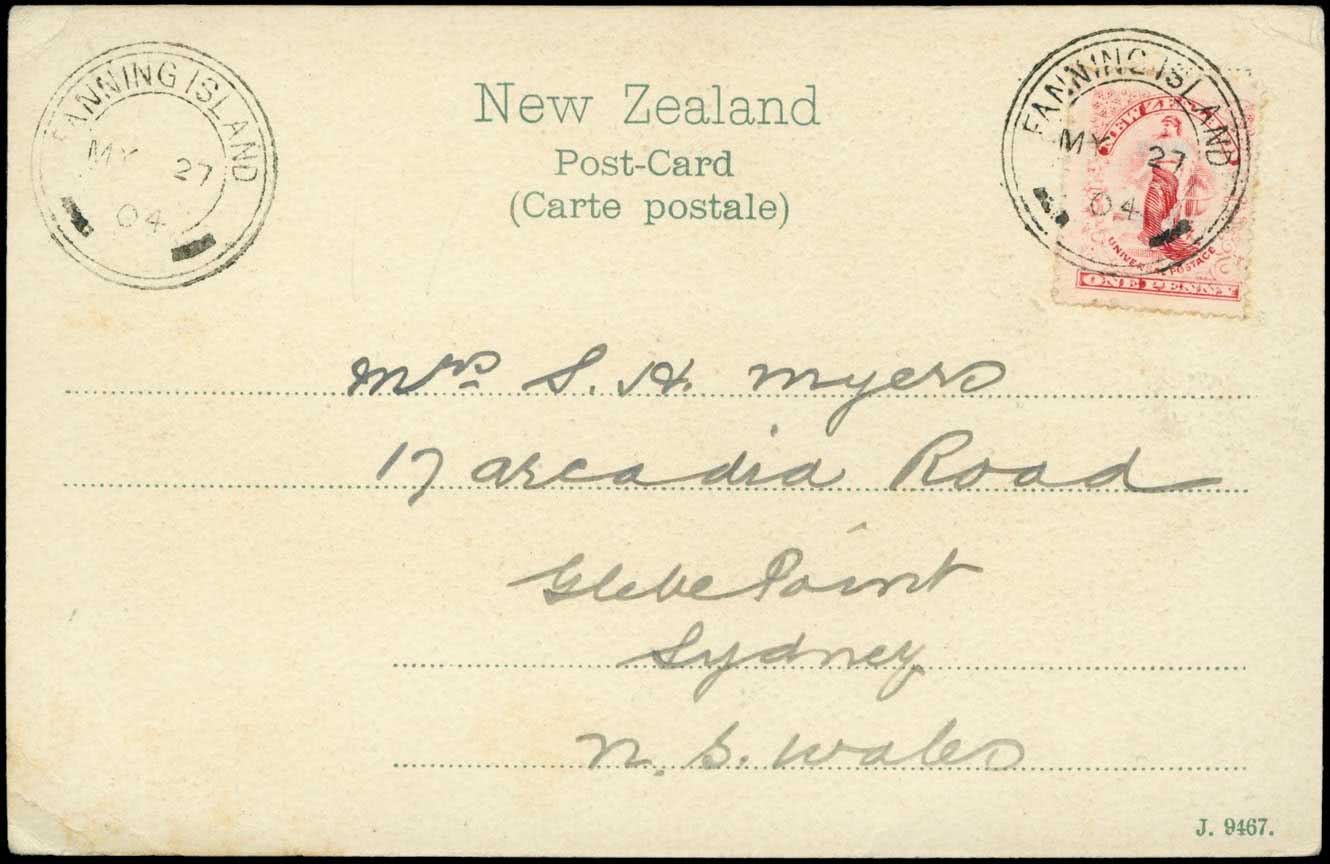 FANNING ISLAND
MY 27
04
New Zealand
Post-Card
(Carte postale)
FANNING ISLAND
MY 27
04
NEW ZEAL
UNIVE POSTAGE
ONE PENNY
Mrs S. H. Myers
17 Arcadia Road
Glebe Point
Sydney
N. S. Wales
J. 9467.